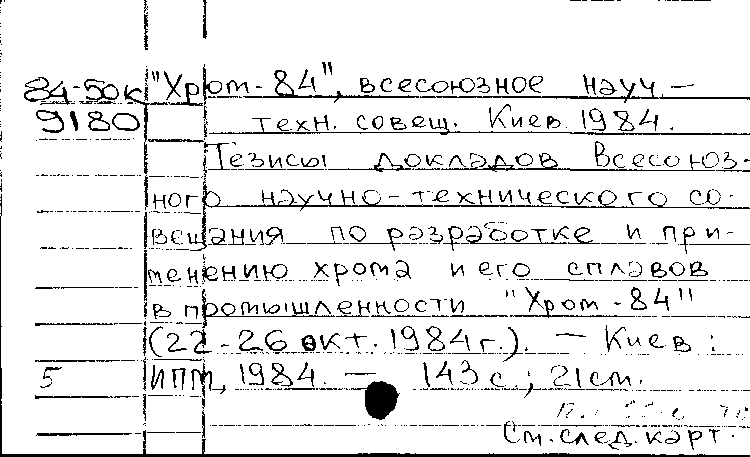 84-50к "Хром-84", всесоюзное науч.-
9180 техн. совещ. Киев 1984.
Тезисы докладов Всесоюз-
ного научно-технического со-
вещания по разработке и при-
менению хрома и его сплавов
в промышленности "Хром-84"
(22-26 окт. 1984 г.). — Киев :
5 ИПМ, 1984. — 143 с.; 21 см.
См. след. карт.